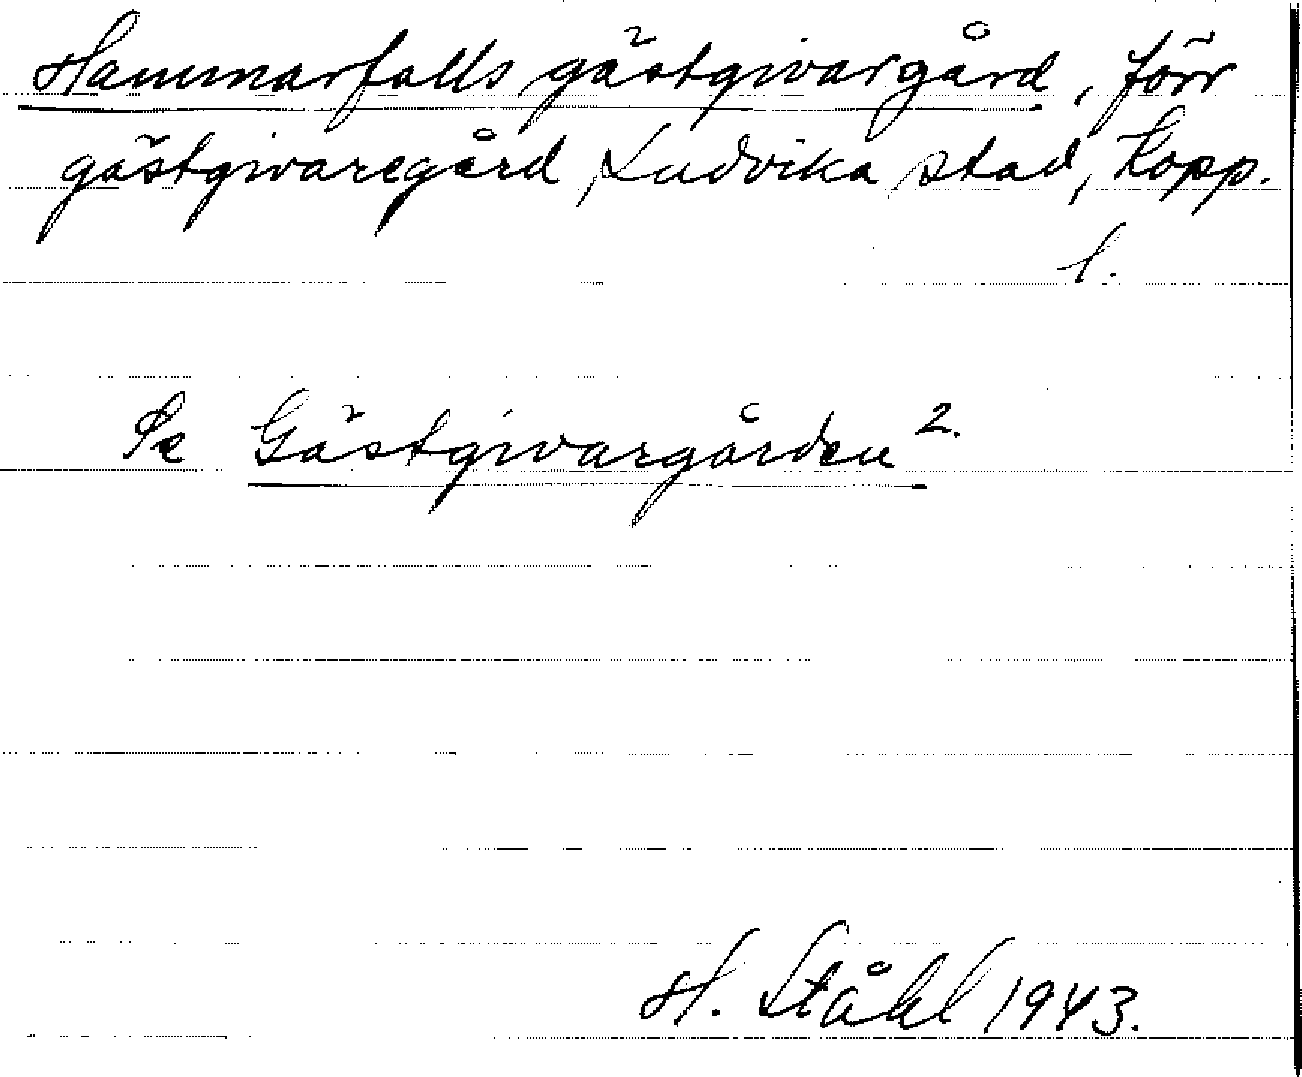 Hammarfalls gästgivargård, förr
gästgivaregård, Ludvika stad, Kopp.
l.
Se Gästgivargården 2.
H. Ståhl 1943.